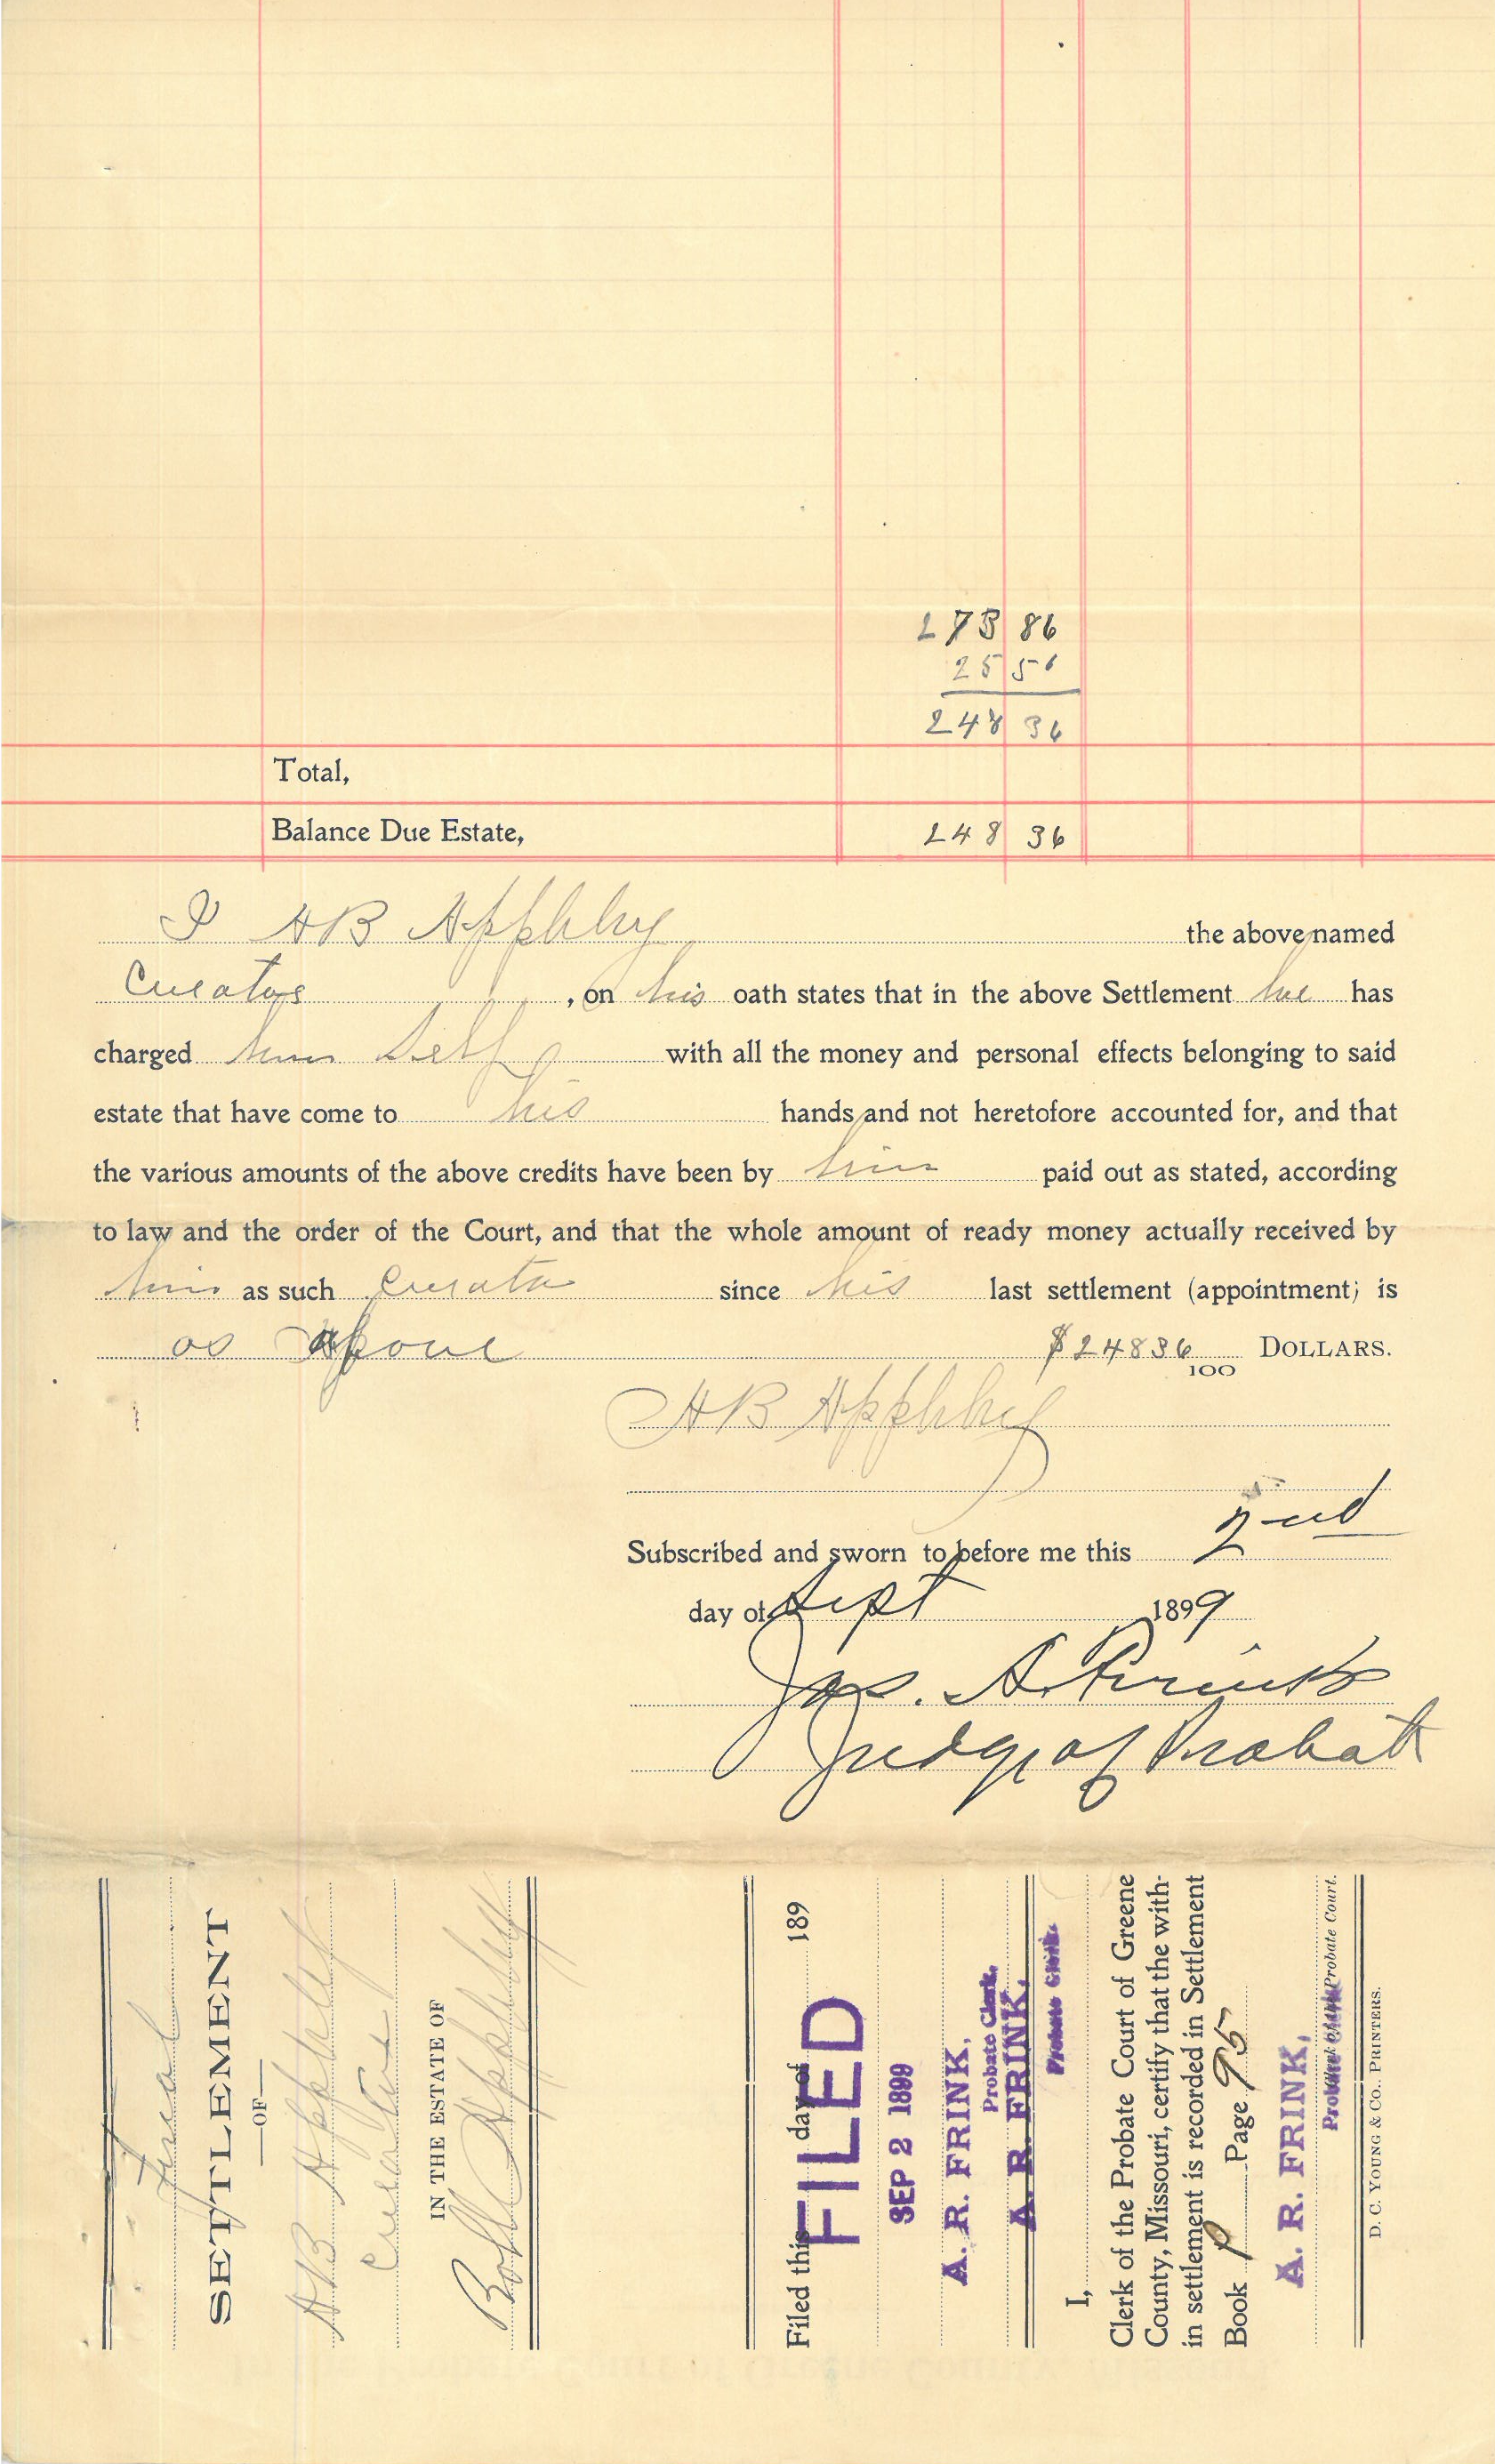 273 86
25 50
248 36
Total,
Balance Due Estate, 248 36
I AB Appleby the above named
Curator , on his oath states that in the above Settlement he has
charged him Self with all the money and personal effects belonging to said
estate that have come to his hands and not heretofore accounted for, and that
the various amounts of the above credits have been by him paid out as stated, according
to law and the order of the Court, and that the whole amount of ready money actually received by
him as such Curator since his last settlement (appointment) is
as above $248 36/100 DOLLARS.
AB Appleby
Subscribed and sworn to before me this 2nd
day of Sept 1899
Jas. A.
Judge of Probate
Final
SETTLEMENT
—OF—
AB Appleby
Curator
IN THE ESTATE OF
Appleby
Filed this day of 189
FILED
SEP 2 1899
A. R. FRINK,
Probate Clerk.
A. R. FRINK,
Probate Clerk.
I,
Clerk of the Probate Court of Greene
County, Missouri, certify that the with-
in settlement is recorded in Settlement
Book P Page 95
A. R. FRINK,
Probate Clerk Probate Court.
D. C. YOUNG & CO., PRINTERS.